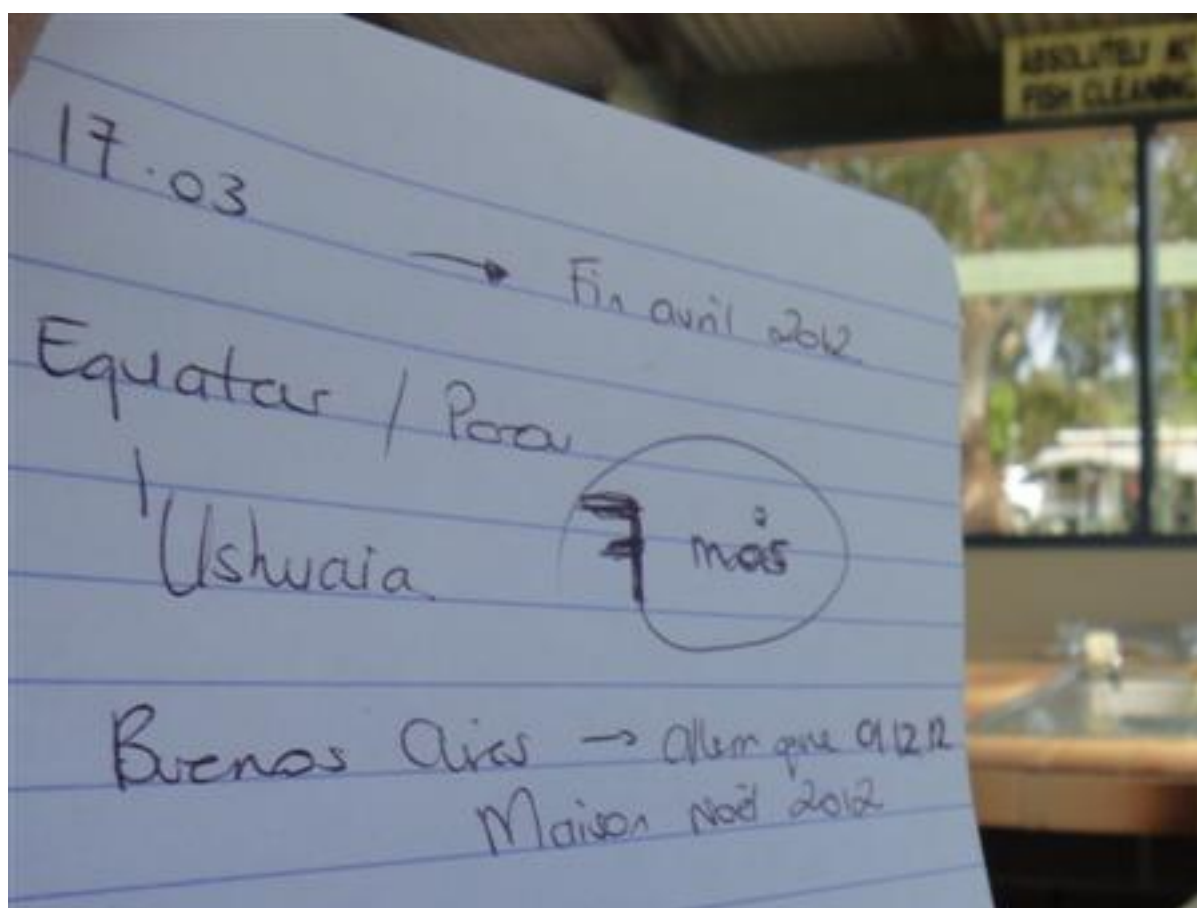 ABSOLUTELY
FISH CLEANING
17.03
→ Fin avril 2012
Equatar /
Ushuaia
7 mois
Buenos Aires → Allemagne 01.12.12
Maison Noël 2012